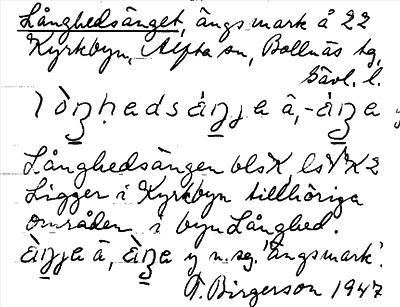 Långhedsänget, ängsmark å 22
Kyrkbyn, Alfta sn, Bollnäs tg,
Gävl. l.
lòŋhedsáŋja â, -áŋa y
Långhedsängen
Ligger i Kyrkbyn tillhöriga
områden i byn Långhed.
àŋja â, àŋa y n. sg. 'ängsmark'.
T. Birgerson 1947